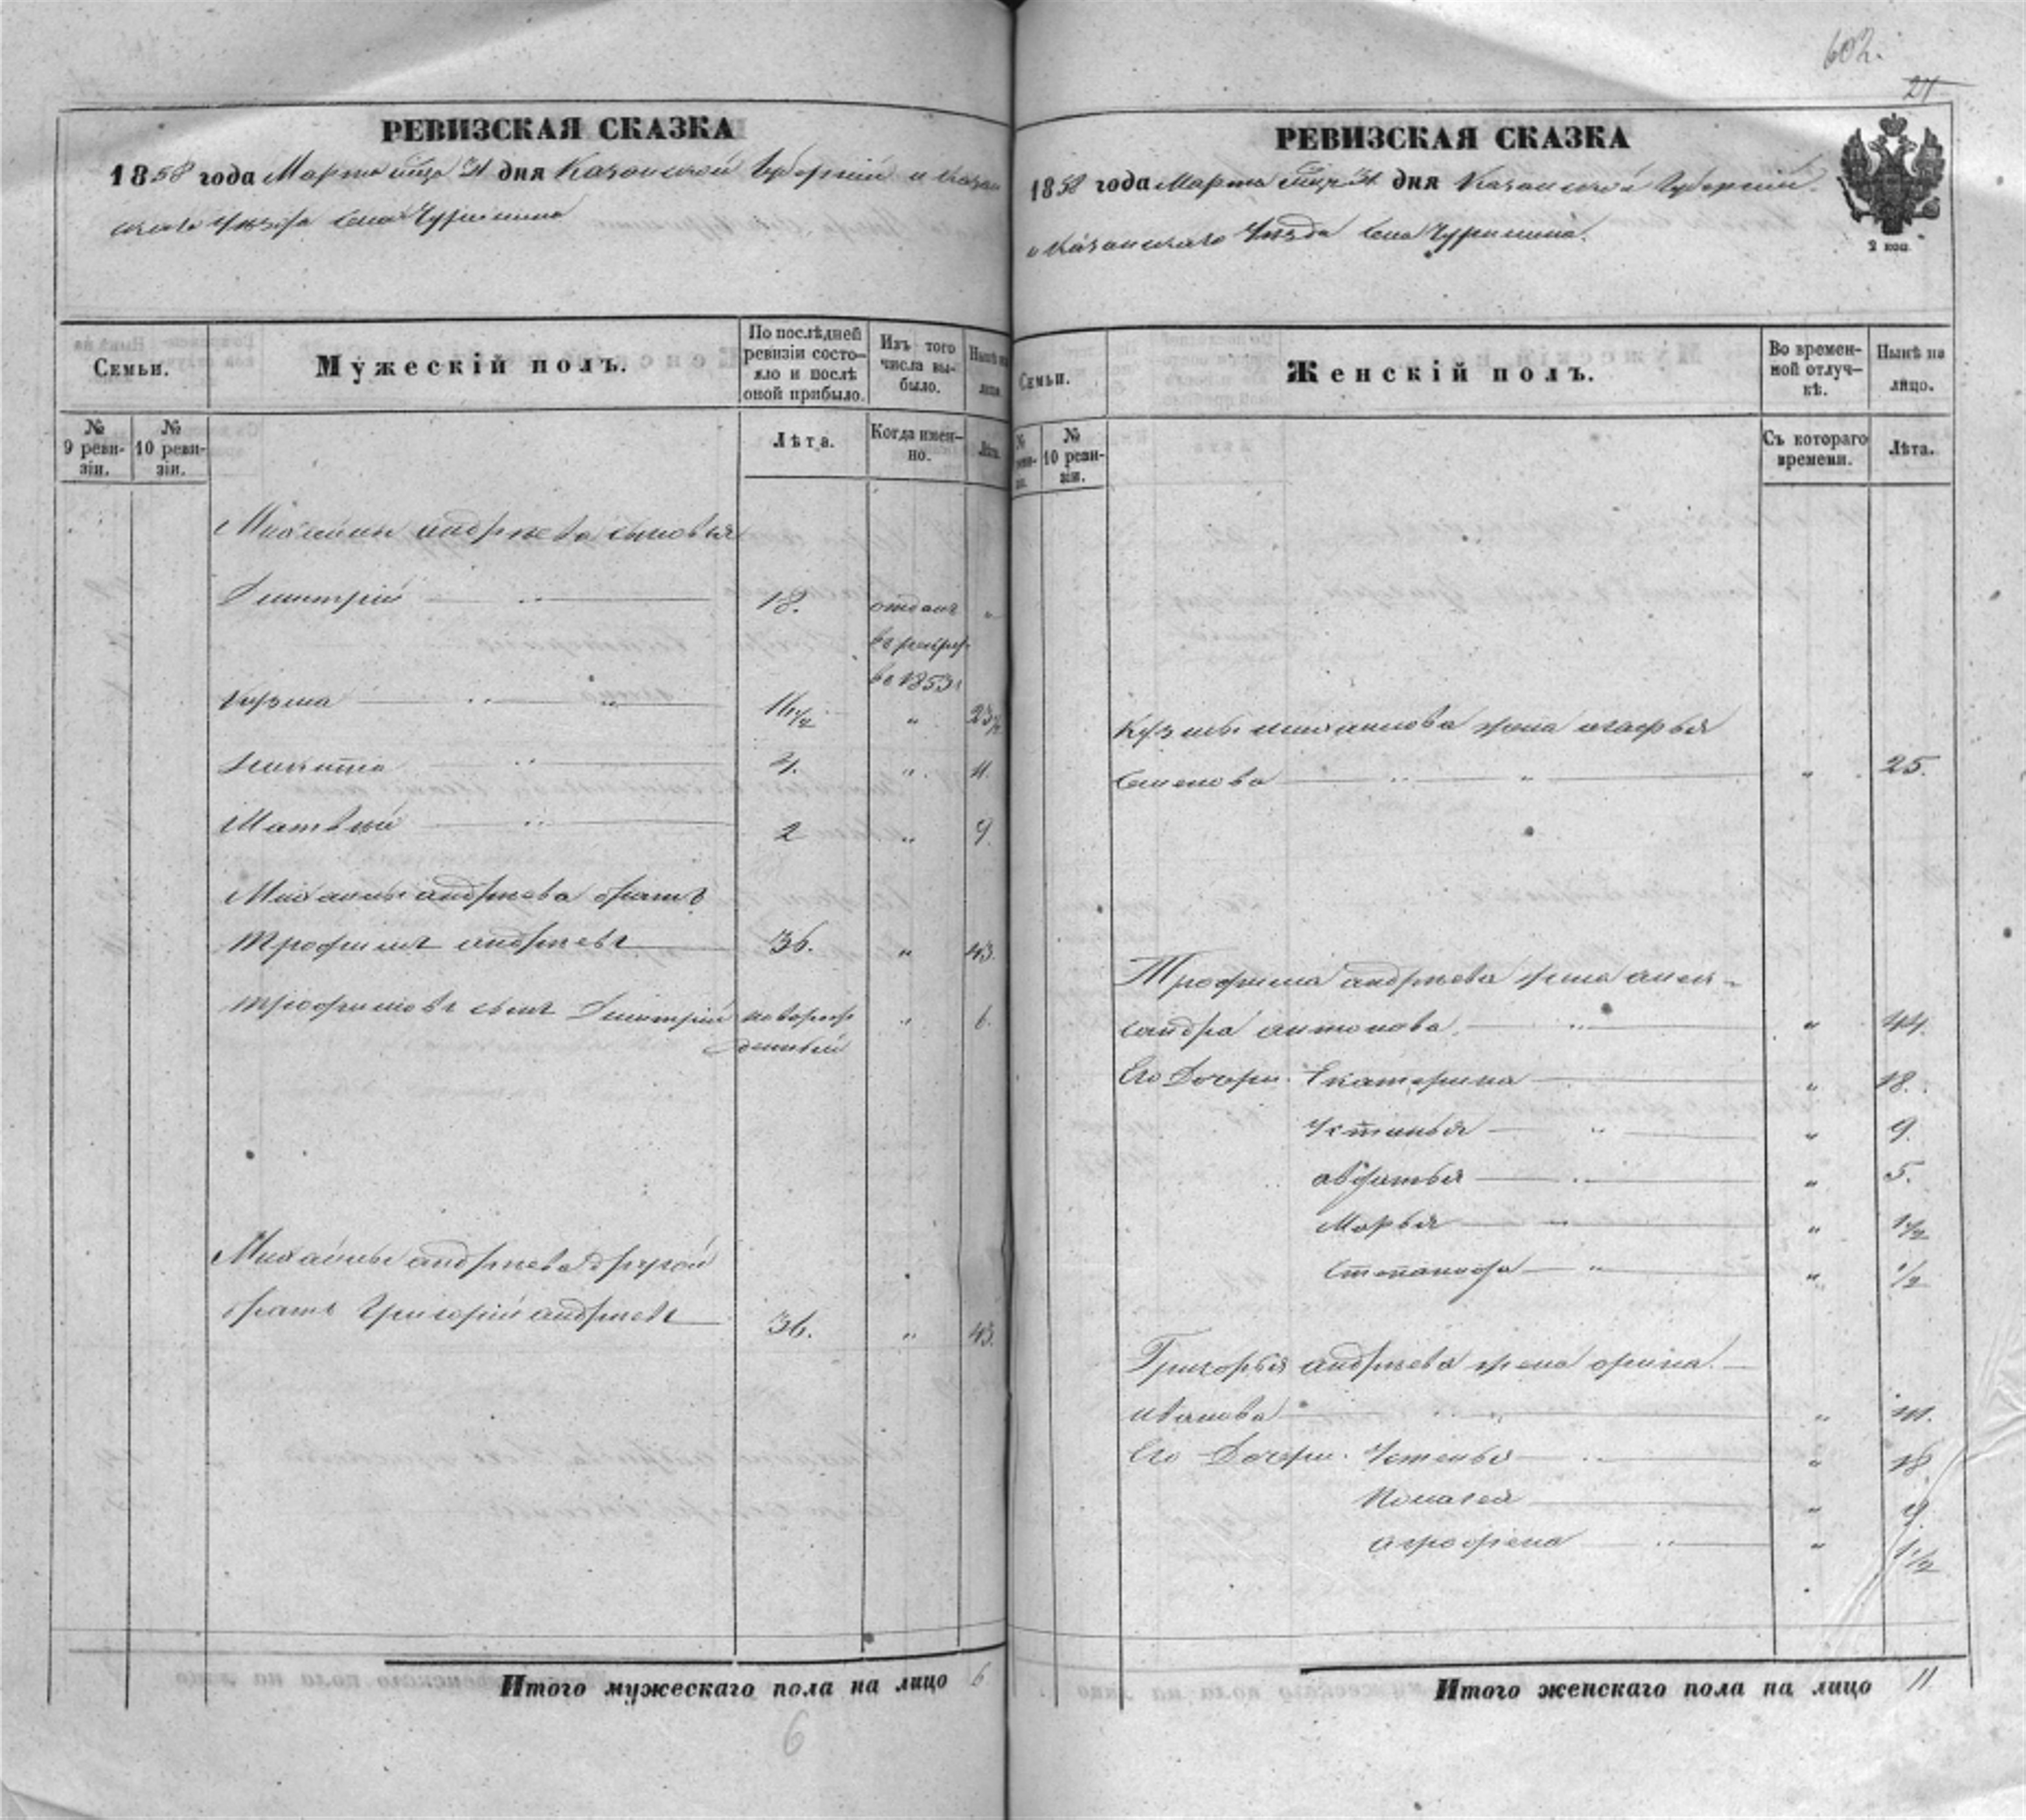 602.
21
РЕВИЗСКАЯ СКАЗКА
1858 года Марта 31 дня Казанской Губерніи и Казан
скаго Уѣзда села Чурилина
Семьи.
Мужескій полъ.
По послѣдней ревизіи состо-
яло и послѣ оной прибыло.
Изъ того числа вы-
было.
Нынѣ на лицо.
№ 9 реви-
зіи.
№ 10 реви-
зіи.
Лѣта.
Когда имен-
но.
Лѣта.
Михайлы андреева сыновья
Дмитрій 18. отданъ „
въ рекру
въ 1853 г
Кузма 16 1/2 „ 23 1/2
Никита 4. „ 11.
Матвѣй 2 „ 9.
Михайлы андреева братъ
Трофимъ андреевъ 36. „ 43.
Трофимовъ сынъ Дмитрій новорож „ 6.
денный
Михайлы андреева другой
братъ Григорій андреевъ 36. „ 43.
Итого мужескаго пола на лицо 6
6
РЕВИЗСКАЯ СКАЗКА
1858 года Марта 31 дня Казанской Губерніи
и Казанскаго Уѣзда села Чурилина.
2 коп
Семьи.
Женскій полъ.
Во времен-
ной отлуч-
кѣ.
Нынѣ на лицо.
№ реви-
зіи.
№ 10 реви-
зіи.
Съ котораго времени.
Лѣта.
Кузмы михайлова жена агафья
Семенова „ 25.
Трофима андреева жена алек-
сандра антонова „ 44.
Его Дочери Екатерина „ 18.
Устинья „ 9.
авдотья „ 5.
Марья „ 1 1/2
Степанида „ 1/2
Григорья андреева жена орина
иванова „ 41.
Его Дочери Устенья „ 18.
Пелагея „ 9.
аграфена „ 1 1/2
Итого женскаго пола на лицо 11